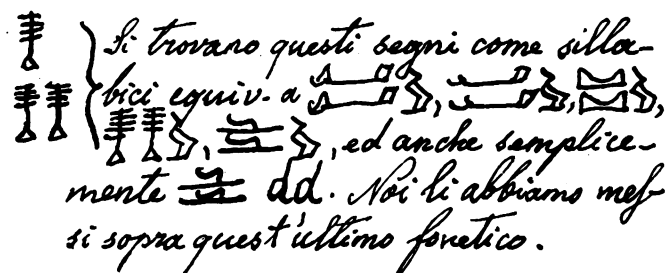 Si trovano questi segni come silla-
bici equiv. a
, ed anche semplice-
mente dd. Noi li abbiamo mes-
si sopra quest'ultimo fonetico.